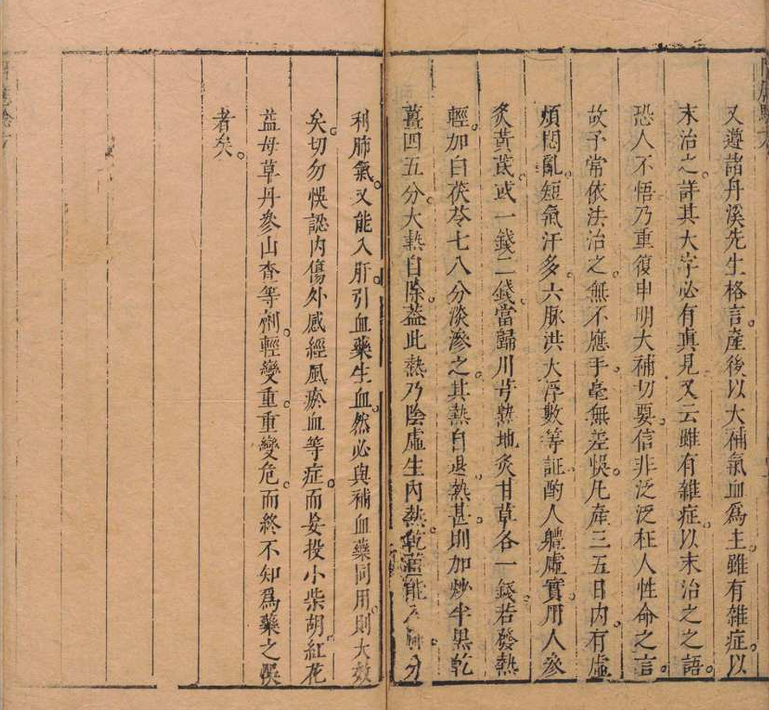 又遵諸丹溪先生格言產後以大補氣血爲主雖有雜症以
末治之詳其大字必有眞見又云雖有雜症以末治之之語
恐人不悟乃重復申明大補切要信非泛泛枉人性命之言
故予常依法治之無不應手毫無差悞凡產三五日內有虛
煩悶亂短氣汗多六脉洪大浮數等証酌人軆虛實用人參
炙黃芪或一錢二錢當歸川芎熟地炙甘草各一錢若發熱
輕加白茯苓七八分淡滲之其熱自退熱甚則加炒半黑乾
薑四五分大熱自除葢此熱乃陰虛生內熱乾薑能入肺分
利肺氣又能入肝引血藥生血然必與補血藥同用則大效
矣切勿悞認內傷外感經風瘀血等症而妄投小柴胡紅花
益母草丹參山查等劑輕變重重變危而終不知爲藥之悞
者矣